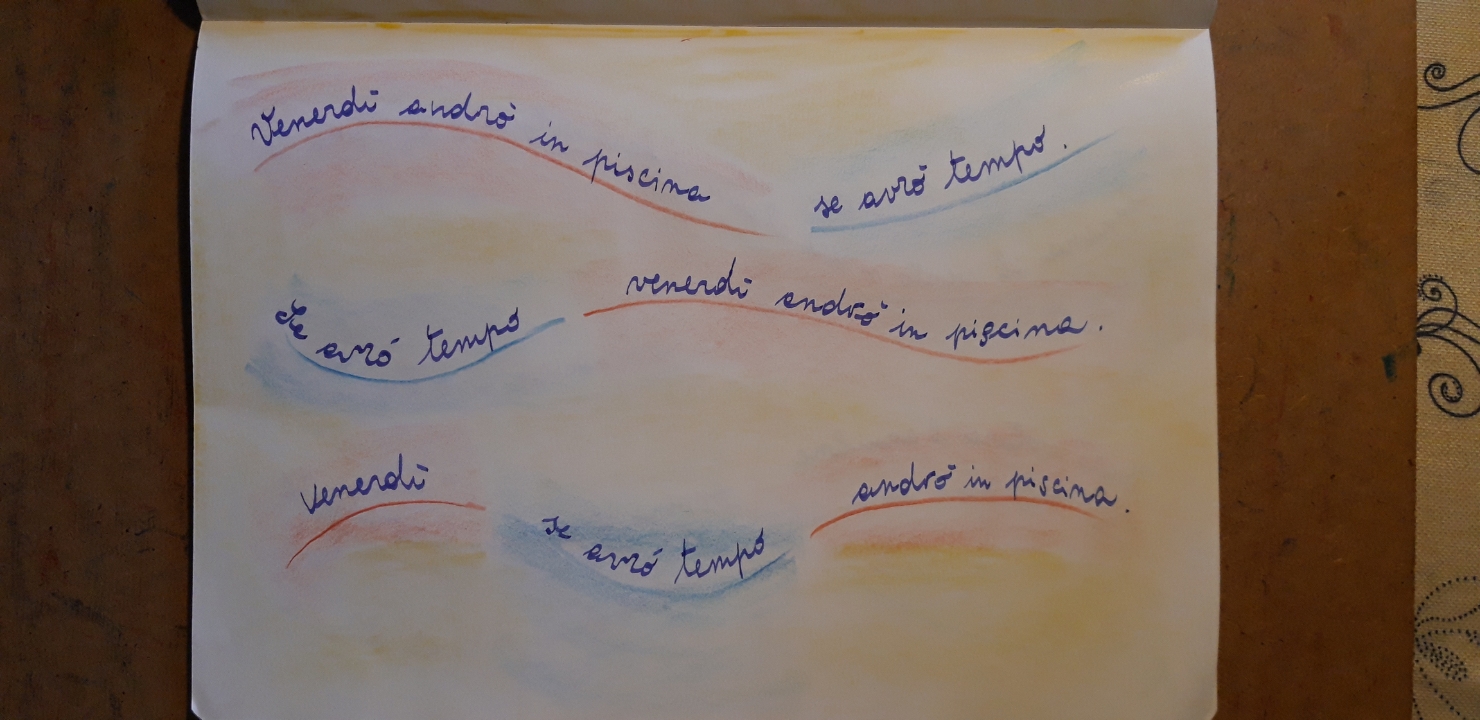 Venerdì andrò in piscina se avrò tempo.
Se avrò tempo venerdì andrò in piscina.
Venerdì se avrò tempo andrò in piscina.